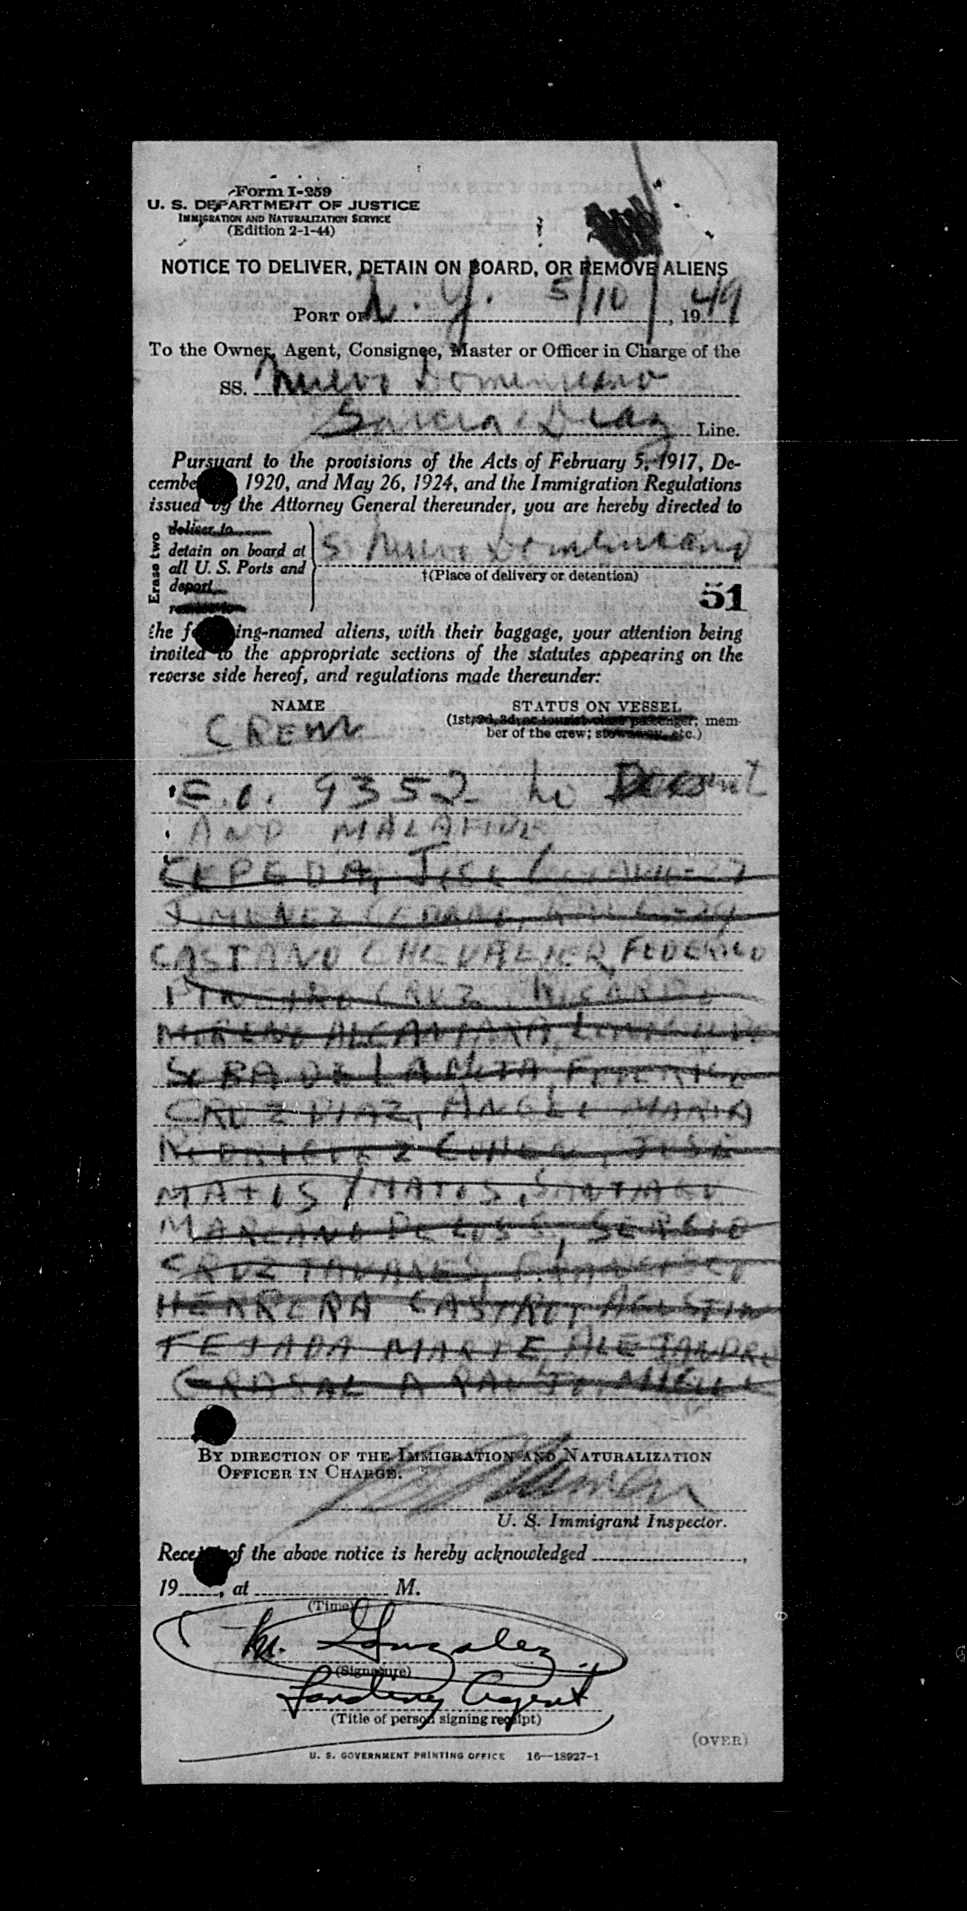 Form I-259
U. S. DEPARTMENT OF JUSTICE
IMMIGRATION AND NATURALIZATION SERVICE
(Edition 2-1-44)
NOTICE TO DELIVER, DETAIN ON BOARD, OR REMOVE ALIENS
PORT OF N. Y. 5/10, 1949
To the Owner, Agent, Consignee, Master or Officer in Charge of the
SS. Nuevo Dominicano
Garcia Diaz Line.
Pursuant to the provisions of the Acts of February 5, 1917, De-
cembe 1920, and May 26, 1924, and the Immigration Regulations
issued by the Attorney General thereunder, you are hereby directed to
Erase two
deliver to
detain on board at
all U. S. Ports and
deport
S. Nuevo Dominicano
†(Place of delivery or detention)
51
the f ing-named aliens, with their baggage, your attention being
invited to the appropriate sections of the statutes appearing on the
reverse side hereof, and regulations made thereunder:
NAME STATUS ON VESSEL
(1st, 2d, 3d, or tourist class passenger; mem-
ber of the crew; stowaway, etc.)
CREW
E.O. 9352 no Document
AND MALAFIDE
CEPEDA, JOSE
JIMENEZ CEDANO,
CASTANO CHEVALIER, FEDERICO
PINEIRO CRUZ, RICARDO
MORENO ALCANTARA,
DE LA MOTA,
CRUZ DIAZ, ANGEL MARIA
RODRIGUEZ COHEN, JOSE
MATOS / MATOS, SANTIAGO
MARCANO DE LOS S, SERGIO
CRUZ TAVARES, FRANCISCO
HERRERA CASTRO, AGUSTIN
TEJADA MARTE, ALEJANDRO
GRASAL
BY DIRECTION OF THE IMMIGRATION AND NATURALIZATION
OFFICER IN CHARGE.
U. S. Immigrant Inspector.
Rece of the above notice is hereby acknowledged ,
19 , at M.
(Time)
M. Gonzalez
(Signature)
Landing Agent
(Title of person signing receipt)
U. S. GOVERNMENT PRINTING OFFICE 16—18927-1
(OVER)